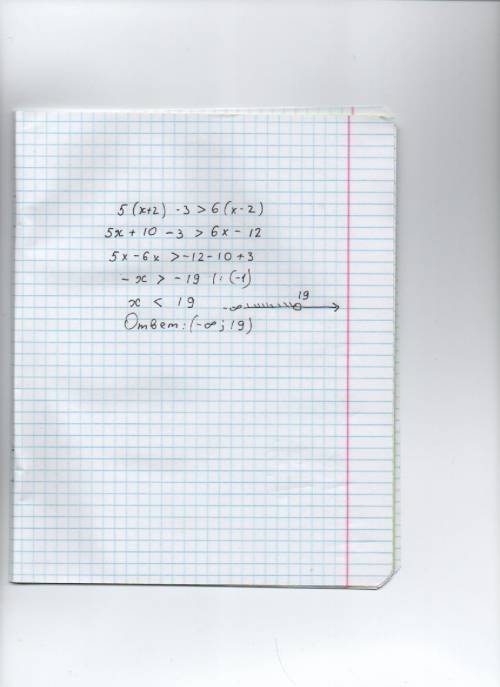 5(x+2) -3 > 6(x-2)
5x + 10 - 3 > 6x - 12
5x - 6x > -12 - 10 + 3
-x > -19 |: (-1)
x < 19 -∞ 19
Ответ: (-∞; 19)